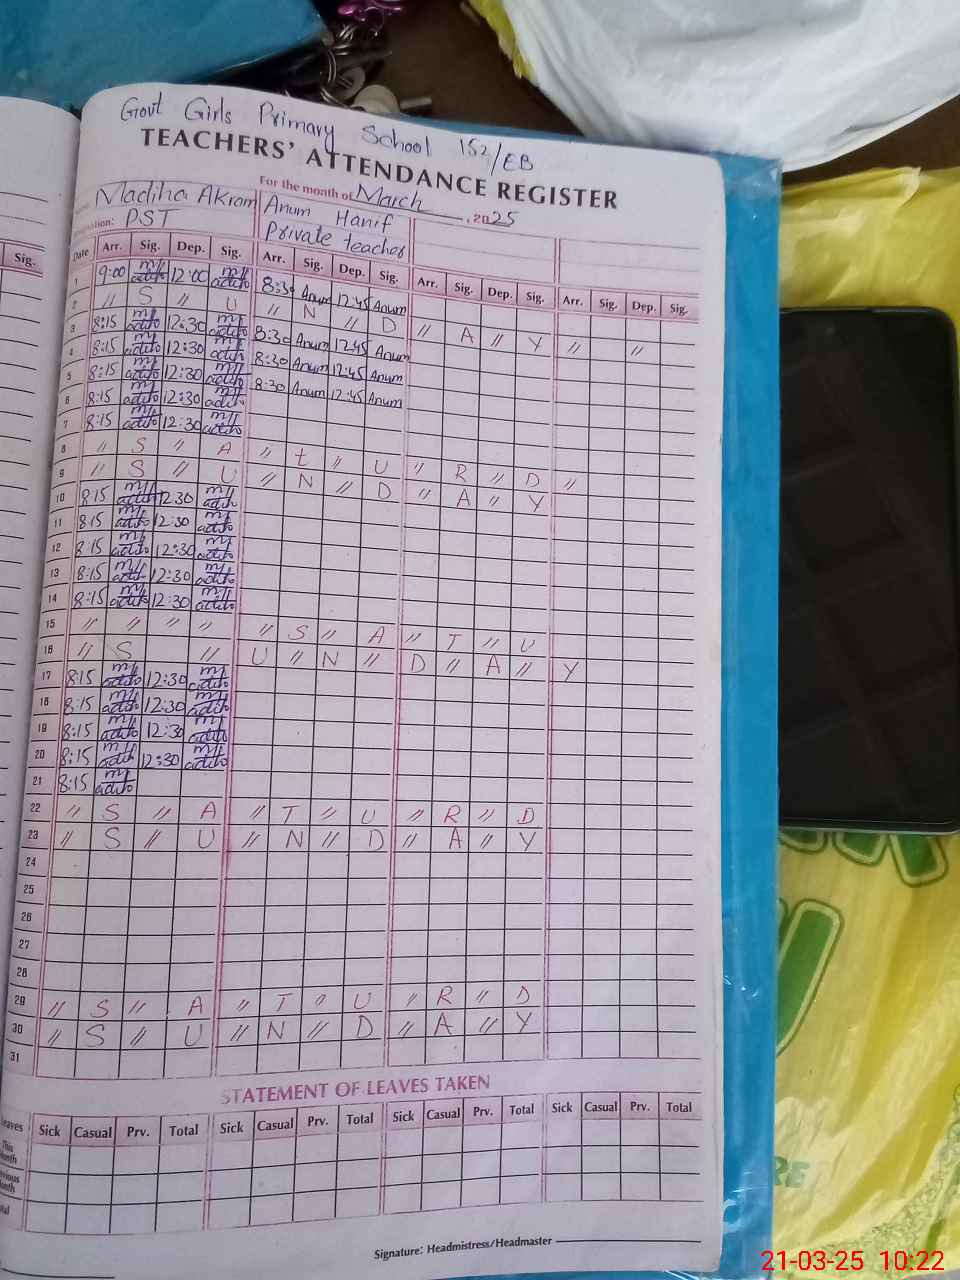 Govt Girls Primary School 152/EB
TEACHERS' ATTENDANCE REGISTER
For the month of March, 2025
Madiha Akram Anum Hanif
PST Private teacher
Date Arr. Sig. Dep. Sig. Arr. Sig. Dep. Sig. Arr. Sig. Dep. Sig. Arr. Sig. Dep. Sig.
1 9:00 12:00 8:30 Anum 12:45 Anum
2 〃 S 〃 U 〃 N 〃 D 〃 A 〃 Y 〃 〃
3 8:15 12:30 8:30 Anum 12:45 Anum
4 8:15 12:30 8:30 Anum 12:45 Anum
5 8:15 12:30 8:30 Anum 12:45 Anum
6 8:15 12:30
7 8:15 12:30
8 〃 S 〃 A 〃 t 〃 U 〃 R 〃 D 〃
9 〃 S 〃 U 〃 N 〃 D 〃 A 〃 Y
10 8:15 12:30
11 8:15 12:30
12 8:15 12:30
13 8:15 12:30
14 8:15 12:30
15 〃 〃 〃 〃 〃 S 〃 A 〃 T 〃 U
16 〃 S 〃 U 〃 N 〃 D 〃 A 〃 Y
17 8:15 12:30
18 8:15 12:30
19 8:15 12:30
20 8:15 12:30
21 8:15
22 〃 S 〃 A 〃 T 〃 U 〃 R 〃 D
23 〃 S 〃 U 〃 N 〃 D 〃 A 〃 Y
24
25
26
27
28
29 〃 S 〃 A 〃 T 〃 U 〃 R 〃 D
30 〃 S 〃 U 〃 N 〃 D 〃 A 〃 Y
31
STATEMENT OF LEAVES TAKEN
Leaves Sick Casual Prv. Total Sick Casual Prv. Total Sick Casual Prv. Total Sick Casual Prv. Total
Signature: Headmistress/Headmaster
21-03-25 10:22